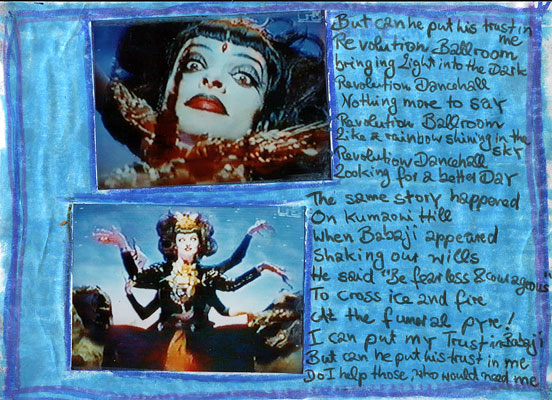 But can he put his trust in
me
Revolution Ballroom
bringing Light into the Dark
Revolution Dancehall
Nothing more to say
Revolution Ballroom
Like a rainbow shining in the
sky
Revolution Dancehall
Looking for a better Day
The same story happened
On Kumaoni Hill
When Babaji appeared
Shaking our wills
He said "Be fearless & courageous"
To cross ice and fire
At the funeral pyre!
I can put my Trust in Babaji
But can he put his trust in me
Do I help those, who would need me